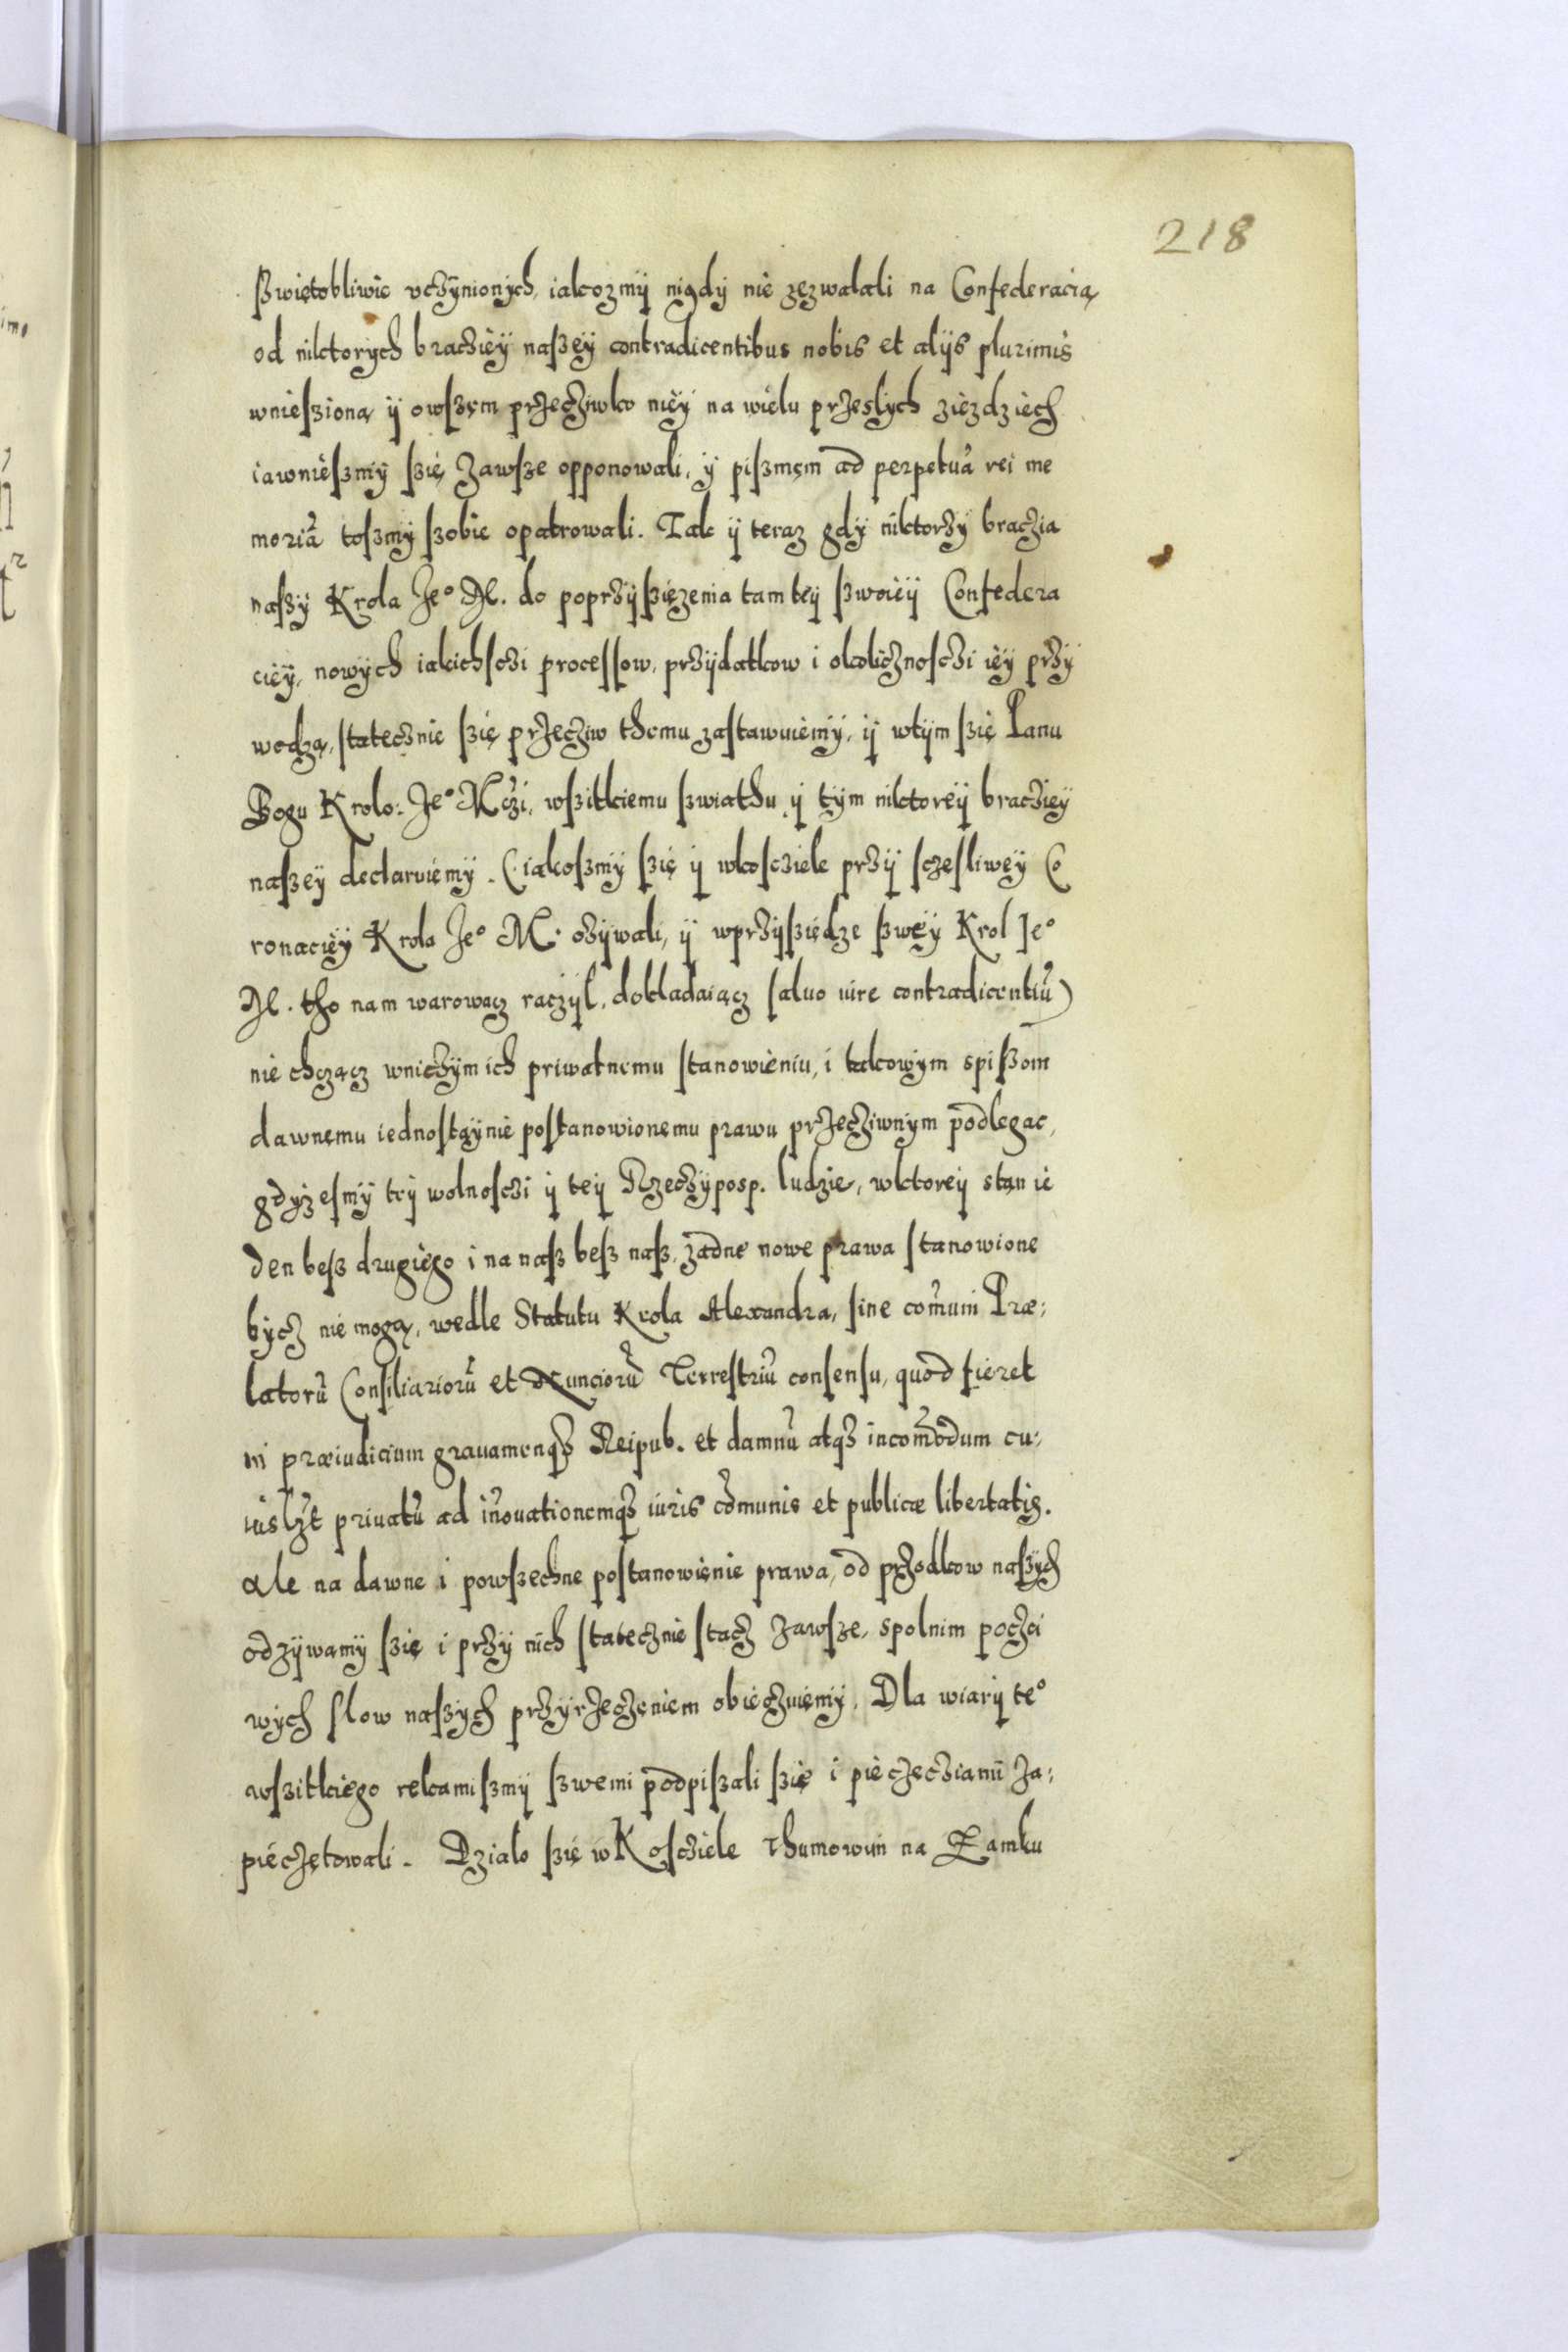 218
ſzwiętobliwie vczÿnionÿch, iakozmÿ nigdÿ nie zezwalali na Confederacią
od niktorÿch braczieÿ naſzeÿ contradicentibus nobis et alÿs plurimis
wnieſzioną ÿ owſzem przecziwko nieÿ na wielu przeslÿch ziezdziech
iawnieſzmÿ ſzię zawſze opponowali, ÿ piſzmem ad perpetuā rei me
moriā toſzmÿ ſzobie opatrowali. Tak ÿ teraz gdÿ niktorzÿ braczia
naſzÿ Krola Jeº M. do poprzÿſzięzenia tamteÿ ſzwoieÿ Confedera
cieÿ, nowÿch iakichſczi proceſſow, przÿdatkow i okolicznoſczi ieÿ przÿ
wodzą, ſtatecznie ſzię przecziw themu zaſtawuiemÿ, ÿ wtÿm ſzię Panu
Bogu Krolo: Jeº Mczi, wſzitkiemu ſzwiathu ÿ tÿm niktoreÿ braczieÿ
naſzeÿ declaruiemÿ. (iakoſzmÿ ſzię ÿ wkoſcziele przÿ ſczeſliweÿ Co
ronacieÿ Krola Jeº M. ozÿwali, ÿ wprzÿſziędze ſzweÿ Krol Jeº
M. tho nam warowacz raczÿl, dokladaiącz ſaluo iure contradicentiū)
nie chcząc wniczÿm ich priwatnemu ſtanowieniu, i takowÿm spiſzom
dawnemu iednoſtaÿnie poſtanowionemu prawu przecziwnÿm podlegac,
gdÿżeſmÿ teÿ wolnoſczi ÿ teÿ Rzeczÿposp. ludzie, wktoreÿ stan ie
den beſz drugiego i na naſz beſz naſz, żadne nowe prawa ſtanowione
bÿcz nie mogą, wedle Statutu Krola Alexandra, ſine com̄uni Præ:
latorū Conſiliariorū et Nunciorū Terreſtriū conſenſu, quod fieret
in præiudicium grauamenqʒ Reipub. et damnū atqʒ incom̄odum cu:
iuslʒt priuatū ad in̄ouationemqʒ iuris cōmunis et publicæ libertatis.
Ale na dawne i powſzechne poſtanowienie prawa, od przodkow naſzÿch
odzÿwamÿ ſzię i przÿ nich ſtatecznie ſtacz zawſze, spolnim poczci
wÿch ſlow naſzÿch przÿrzeczeniem obiecznięmÿ. Dla wiarÿ teº
wſzitkiego rekamiſzmÿ ſzwemi podpiſzali ſzię i pieczecziami za:
pieczętowali. Dzialo ſzię w Koſcziele Thumowim na Zamku